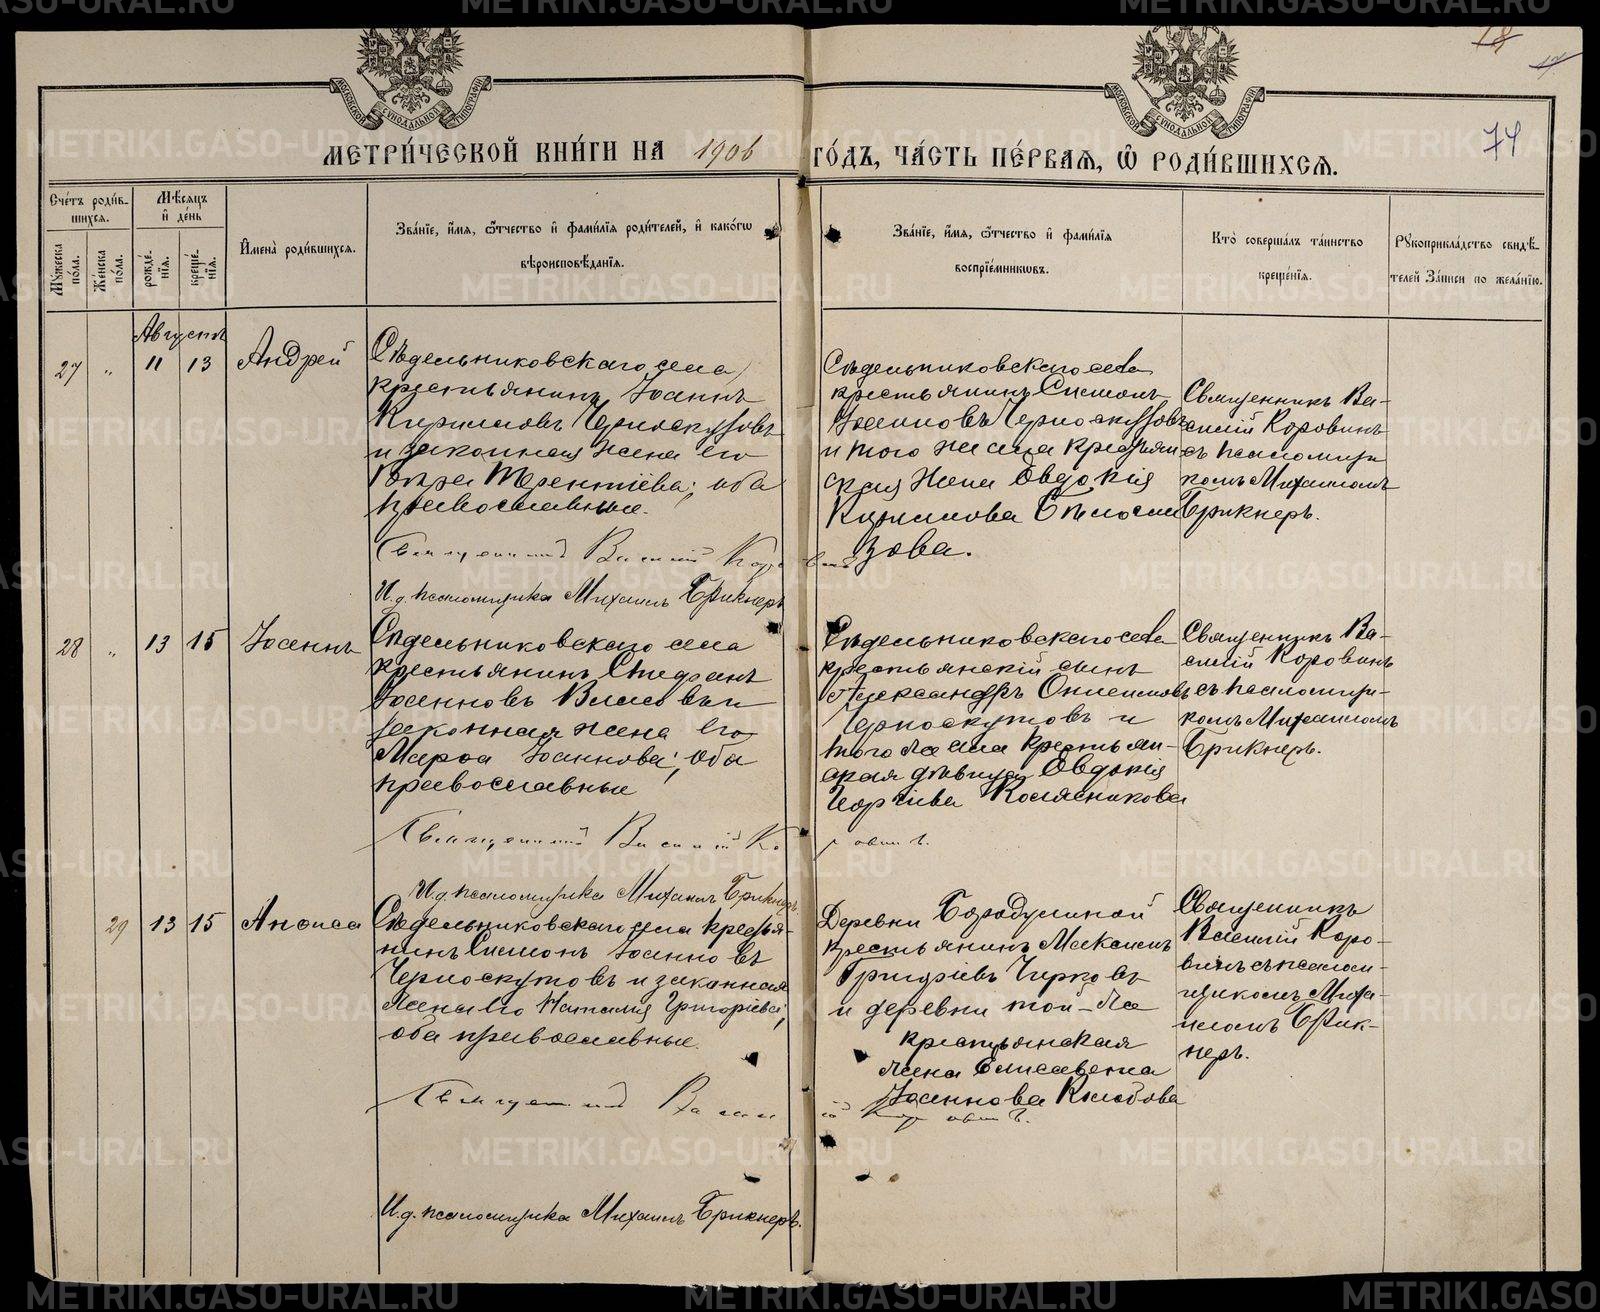 METRIKI.GASO-URAL.RU
18
17
74
МЕТРИ́ЧЕСКОЙ КНИ́ГИ НА 1906 ГО́ДЪ, ЧА́СТЬ ПЕ́РВАЯ, Ѽ РОДИ́ВШИХСЯ.
Сче́тъ роди́в-
шихся.
Мѣ́сяцъ
и҆ де́нь
Мꙋжеска по́ла.
Же́нска по́ла.
рожде́нїя.
креще́нїя.
И҆мена̀ роди́вшихся.
Зва́нїе, и҆́мя, ѻ҆́тчество и҆ фами́лїя роди́телей, и҆ како́гѡ
вѣроисповѣ́данїя.
Зва́нїе, и҆́мя, ѻ҆́тчество и҆ фами́лїя
воспрїе́мникѡвъ.
Кто̀ соверша́лъ та́инство
креще́нїя.
Рꙋкоприкла́дство свидѣ́-
телей за́писи по жела́нїю.
Августъ
27 " 11 13 Андрей
Сѣдельниковскаго села
крестьянинъ Іоаннъ
Кириловъ Черноскутовъ
и законная жена его
Вѣра Терентіева; оба
православные.
Священникъ Василій Коровинъ
И.д. псаломщика Михаилъ Брикнеръ
Сѣдельниковскаго села
крестьянинъ Симеонъ
Іоанновъ Черноскутовъ
и того же села крестьян
ская жена Евдокія
Кирилова
зова.
Священникъ Ва-
силій Коровинъ
съ псаломщи
комъ Михаиломъ
Брикнеръ.
28 " 13 15 Іоаннъ
Сѣдельниковскаго села
крестьянинъ Стефанъ
Іоанновъ и
законная жена его
Марѳа Іоаннова; оба
православные
Священникъ Василій Коровинъ.
И.д. псаломщика Михаилъ Брикнеръ
Сѣдельниковскаго села
крестьянскій сынъ
Александръ
Черноскутовъ и
того же села крестьян-
ская дѣвица Евдокія
Георгіева Колясникова
Священникъ Ва-
силій Коровинъ
съ псаломщи-
комъ Михаиломъ
Брикнеръ.
29 13 15 Анѳиса
Сѣдельниковскаго села крестья-
нинъ Симеонъ Іоанновъ
Черноскутовъ и законная
жена его Наталія Григоріева;
оба православные.
Священникъ Василій Коровинъ.
И.д. псаломщика Михаилъ Брикнеръ.
Деревни Бородулиной
крестьянинъ Максимъ
Григоріевъ Чирковъ
и деревни той-же
крестьянская
жена Елисавета
Іоаннова
Священникъ
Василій Коро-
винъ съ псалом-
щикомъ Миха-
иломъ Брик-
неръ.